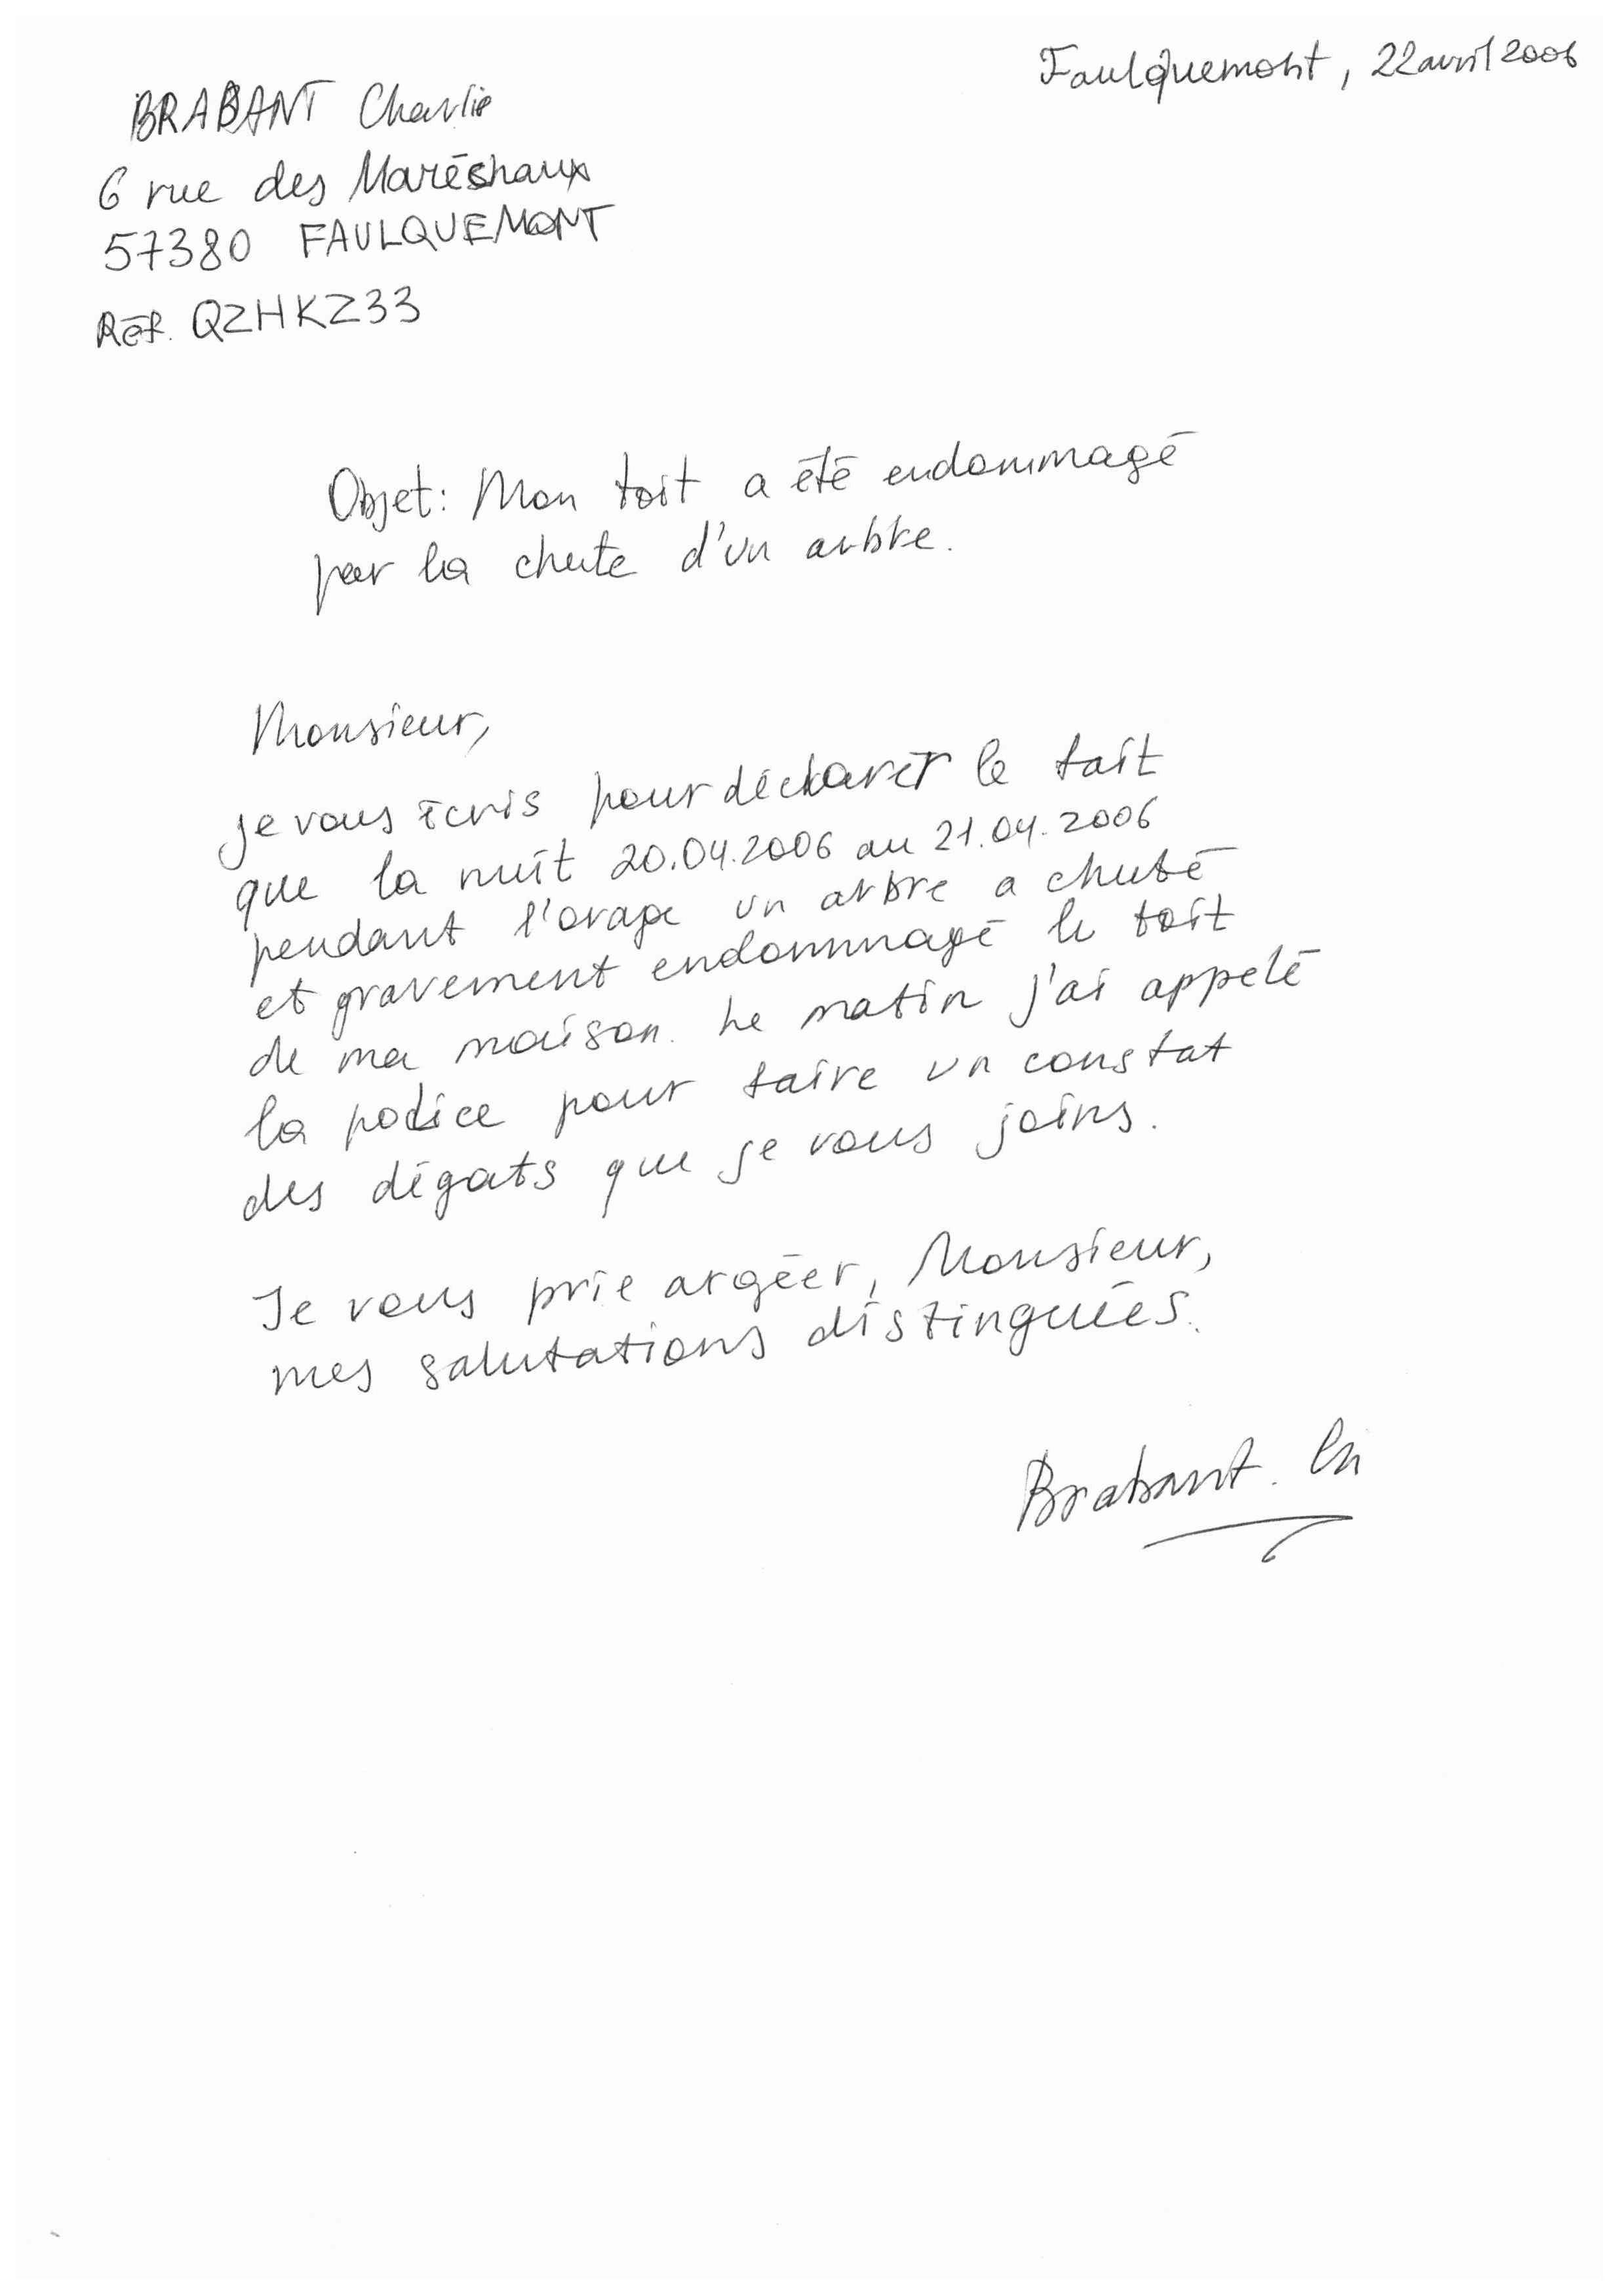 Faulquemont, 22 avril 2006
BRABANT Charlie
6 rue des Maréchaux
57380 FAULQUEMONT
Réf. QZHKZ33
Objet: Mon toit a été endommagé
par la chute d'un arbre.
Monsieur,
je vous écris pour déclarer le fait
que la nuit 20.04.2006 au 21.04.2006
pendant l'orage un arbre a chuté
et gravement endommagé le toit
de ma maison. Le matin j'ai appelé
la police pour faire un constat
des dégats que je vous joins.
Je vous prie argéer, Monsieur,
mes salutations distinguées.
Brabant. Ch